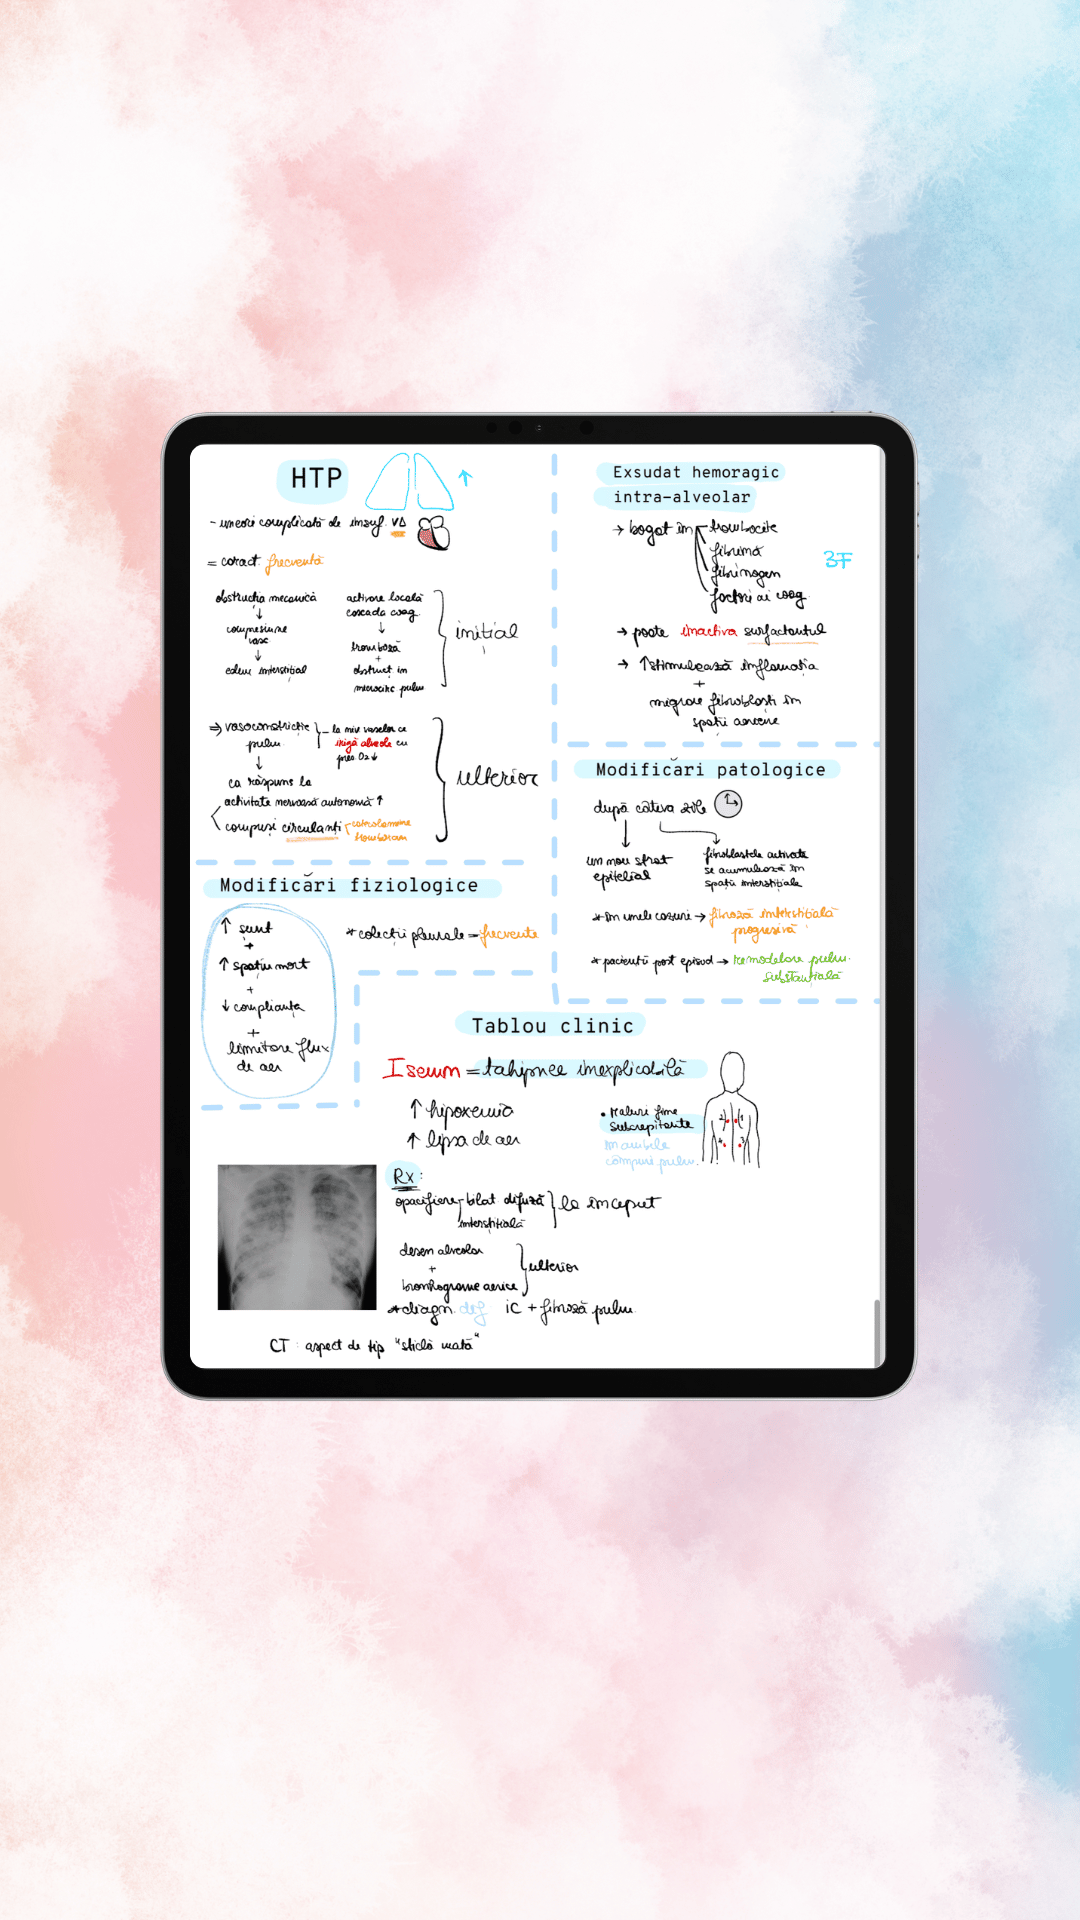 HTP
↑
- uneori complicată de insuf. VD
= caract. frecventă
obstrucția mecanică
↓
compresiune
vasc
↓
edem interstițial
activare locală
cascada coag.
↓
tromboză
+
obstruct. în
microcirc pulm
inițial
⇒ vasoconstricție
pulm.
- la niv vaselor ce
irigă alveole cu
pres O2 ↓
↓
ca răspuns la
activitate nervoasă autonomă ↑
compuși circulanți
catecolamine
tromboxan
ulterior
Modificări fiziologice
↑ șunt
+
↑ spațiu mort
+
↓ complianța
+
limitare flux
de aer
* colecții pleurale = frecvente
Exsudat hemoragic
intra-alveolar
→ bogat în
trombocite
fibrină
fibrinogen
factori ai coag.
3F
→ poate inactiva surfactantul
→ ↑ stimulează inflamația
+
migrare fibroblaști în
spații aeriene
Modificări patologice
după câteva zile
un nou strat
epitelial
fibroblastele activate
se acumulează în
spații interstițiale
* în unele cazuri → fibroză interstițială
progresivă
* pacienții post episod → remodelare pulm.
substanțială
Tablou clinic
I semn = tahipnee inexplicabilă
↑ hipoxemia
↑ lipsa de aer
• raluri fine
subcrepitante
în ambele
câmpuri pulm.
2 1
4 3
Rx:
opacifiere bilat difuză
interstițială
la început
desen alveolar
+
bronhograme aerice
ulterior
* diagn. def IC + fibroză pulm.
CT : aspect de tip "sticlă mată"